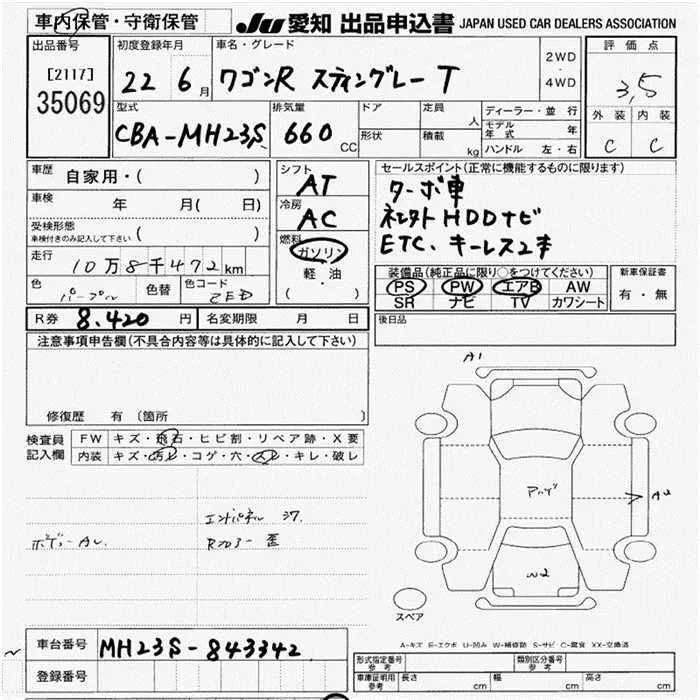 車内保管・守衛保管
JU 愛知 出品申込書 JAPAN USED CAR DEALERS ASSOCIATION
出品番号 初度登録年月 車名・グレード 評価点
[2117] 22 6月 ワゴンR スティングレー T 2WD・4WD 3,5
35069
型式 排気量 ドア 定員 人 ディーラー・並行 外装 内装
CBA-MH23S 660CC 形状 積載 kg モデル年式 年 C C
ハンドル 左・右
車歴 自家用・( )
車検 年 月( 日)
受検形態 車検付きのみ記入して下さい ( )
走行 10万8千472km
色 パープル 色替 色コード ZED
シフト AT
冷房 AC
燃料 ガソリン
軽・油
( ・ )
セールスポイント(正常に機能するものに限ります)
ターボ車
社外HDDナビ
ETC、キーレス2本
装備品(純正品に限り○をつけてください) 新車保証書
PS PW エアB AW 有・無
SR ナビ TV カワシート
後日品
R券 8,420円 名変期限 月 日
注意事項申告欄(不具合内容等は具体的に記入して下さい)
修復歴 有 〔箇所 〕
検査員記入欄 FW キズ・飛石・ヒビ割・リペア跡・X要
内装 キズ・汚レ・コゲ・穴・スレ・キレ・破レ
エンドパネル
Rフロアー 歪
A1
A2
W2
スペア
A-キズ E-エクボ U-凹み W-補修跡 S-サビ C-腐食 XX-交換済
車台番号 MH23S-843342
登録番号
形式指定番号 参考 類別区分番号 参考
車庫証明用 参考 長さ cm 幅 cm 高さ cm